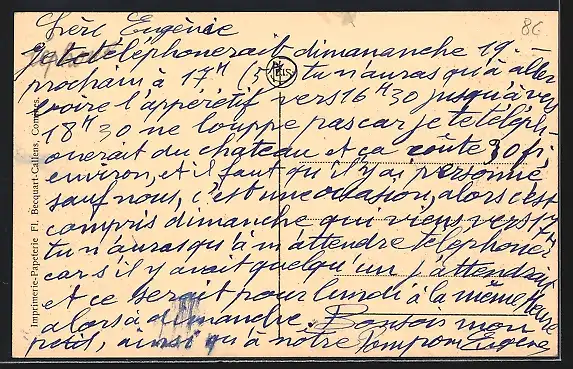 Chère Eugénie
Je te téléphonerait dimananche 19. -
prochain à 17H (5H) tu n'auras qu'à aller
boire l'appérétif vers 16H30 jusqu'à vers
18H30 ne louppe pas car je te téléph-
onerait du chateau et ça coûte 30 fr
environ, et il faut qu'il y ai personne
sauf nous, c'est une occasion, alors c'est
compris dimanche qui viens vers 17H
tu n'auras qu'à m'attendre téléphoner
car s'il y avait quelqu'un j'attendrai
et ce serait pour lundi à la même heure
alors à dimanche. Bonsoir mon
petit, ainsi qu'à nôtre Pompom Eugène
86
Imprimerie-Papeterie Fl. Becquart-Callens, Comines.